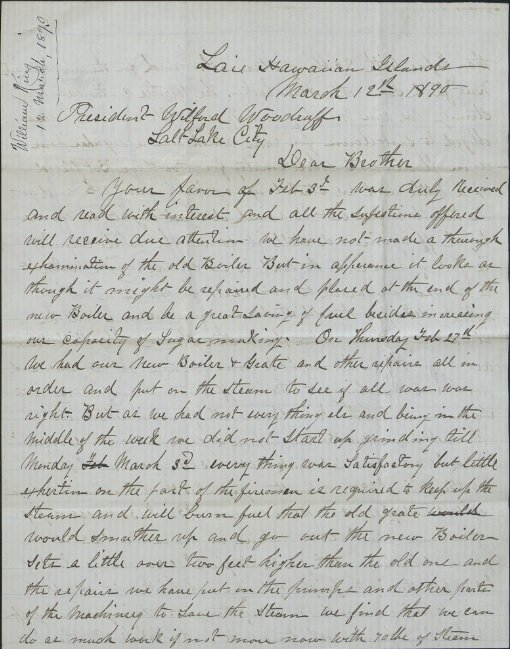 William King
12 March, 1890
Laie Hawaiian Islands
March 12th 1890
President Wilford Woodruff
Salt Lake City
Dear Brother
Your favor of Feb 3d was duly received
and read with interest and all the sugestions offered
will receive due attention we have not made a thorough
examination of the old Boiler But in apperance it looks as
though it might be repaired and placed at the end of the
new Boiler and be a great Saving of fuel besides increasing
our capacity of Sugar making. On Thursday Feb 27th
we had our New Boiler & Grate and other repairs all in
order and put on the steam to see if all was was
right. But as we had not every thing els and being in the
middle of the week we did not Start up grinding till
Monday Feb March 3d every thing was Satisfactory but little
exhertion on the part of the firemen is required to keep up the
steam and will burn fuel that the old grate would
would smuther up and go out the new Boiler
sets a little over two feet higher than the old one and
the repairs we have put on the pumps and other parts
of the Machinery to Save the Steam we find that we can
do as much work if not more now with 70 lbs of Steam